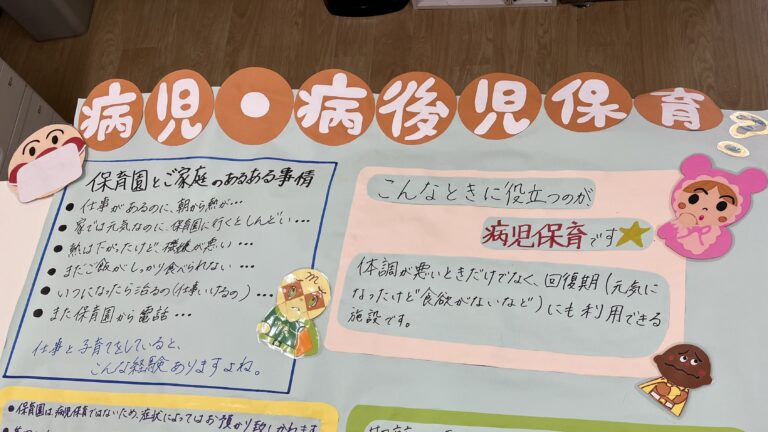 病児・病後児保育
保育園とご家庭のあるある事情
● 仕事があるのに、朝から熱が…
● 家では元気なのに、保育園に行くとしんどい…
● 熱は下がったけど、機嫌が悪い…
● まだご飯がしっかり食べられない…
● いつになったら治るの(仕事いけるの)…
● また保育園から電話…
仕事と子育てをしていると、
こんな経験ありますよね。
こんなときに役立つのが
病児保育です
体調が悪いときだけでなく、回復期(元気に
なったけど食欲がないなど)にも利用できる
施設です。
● 保育園は、病児保育ではないため、症状によってはお預かり致しかねます